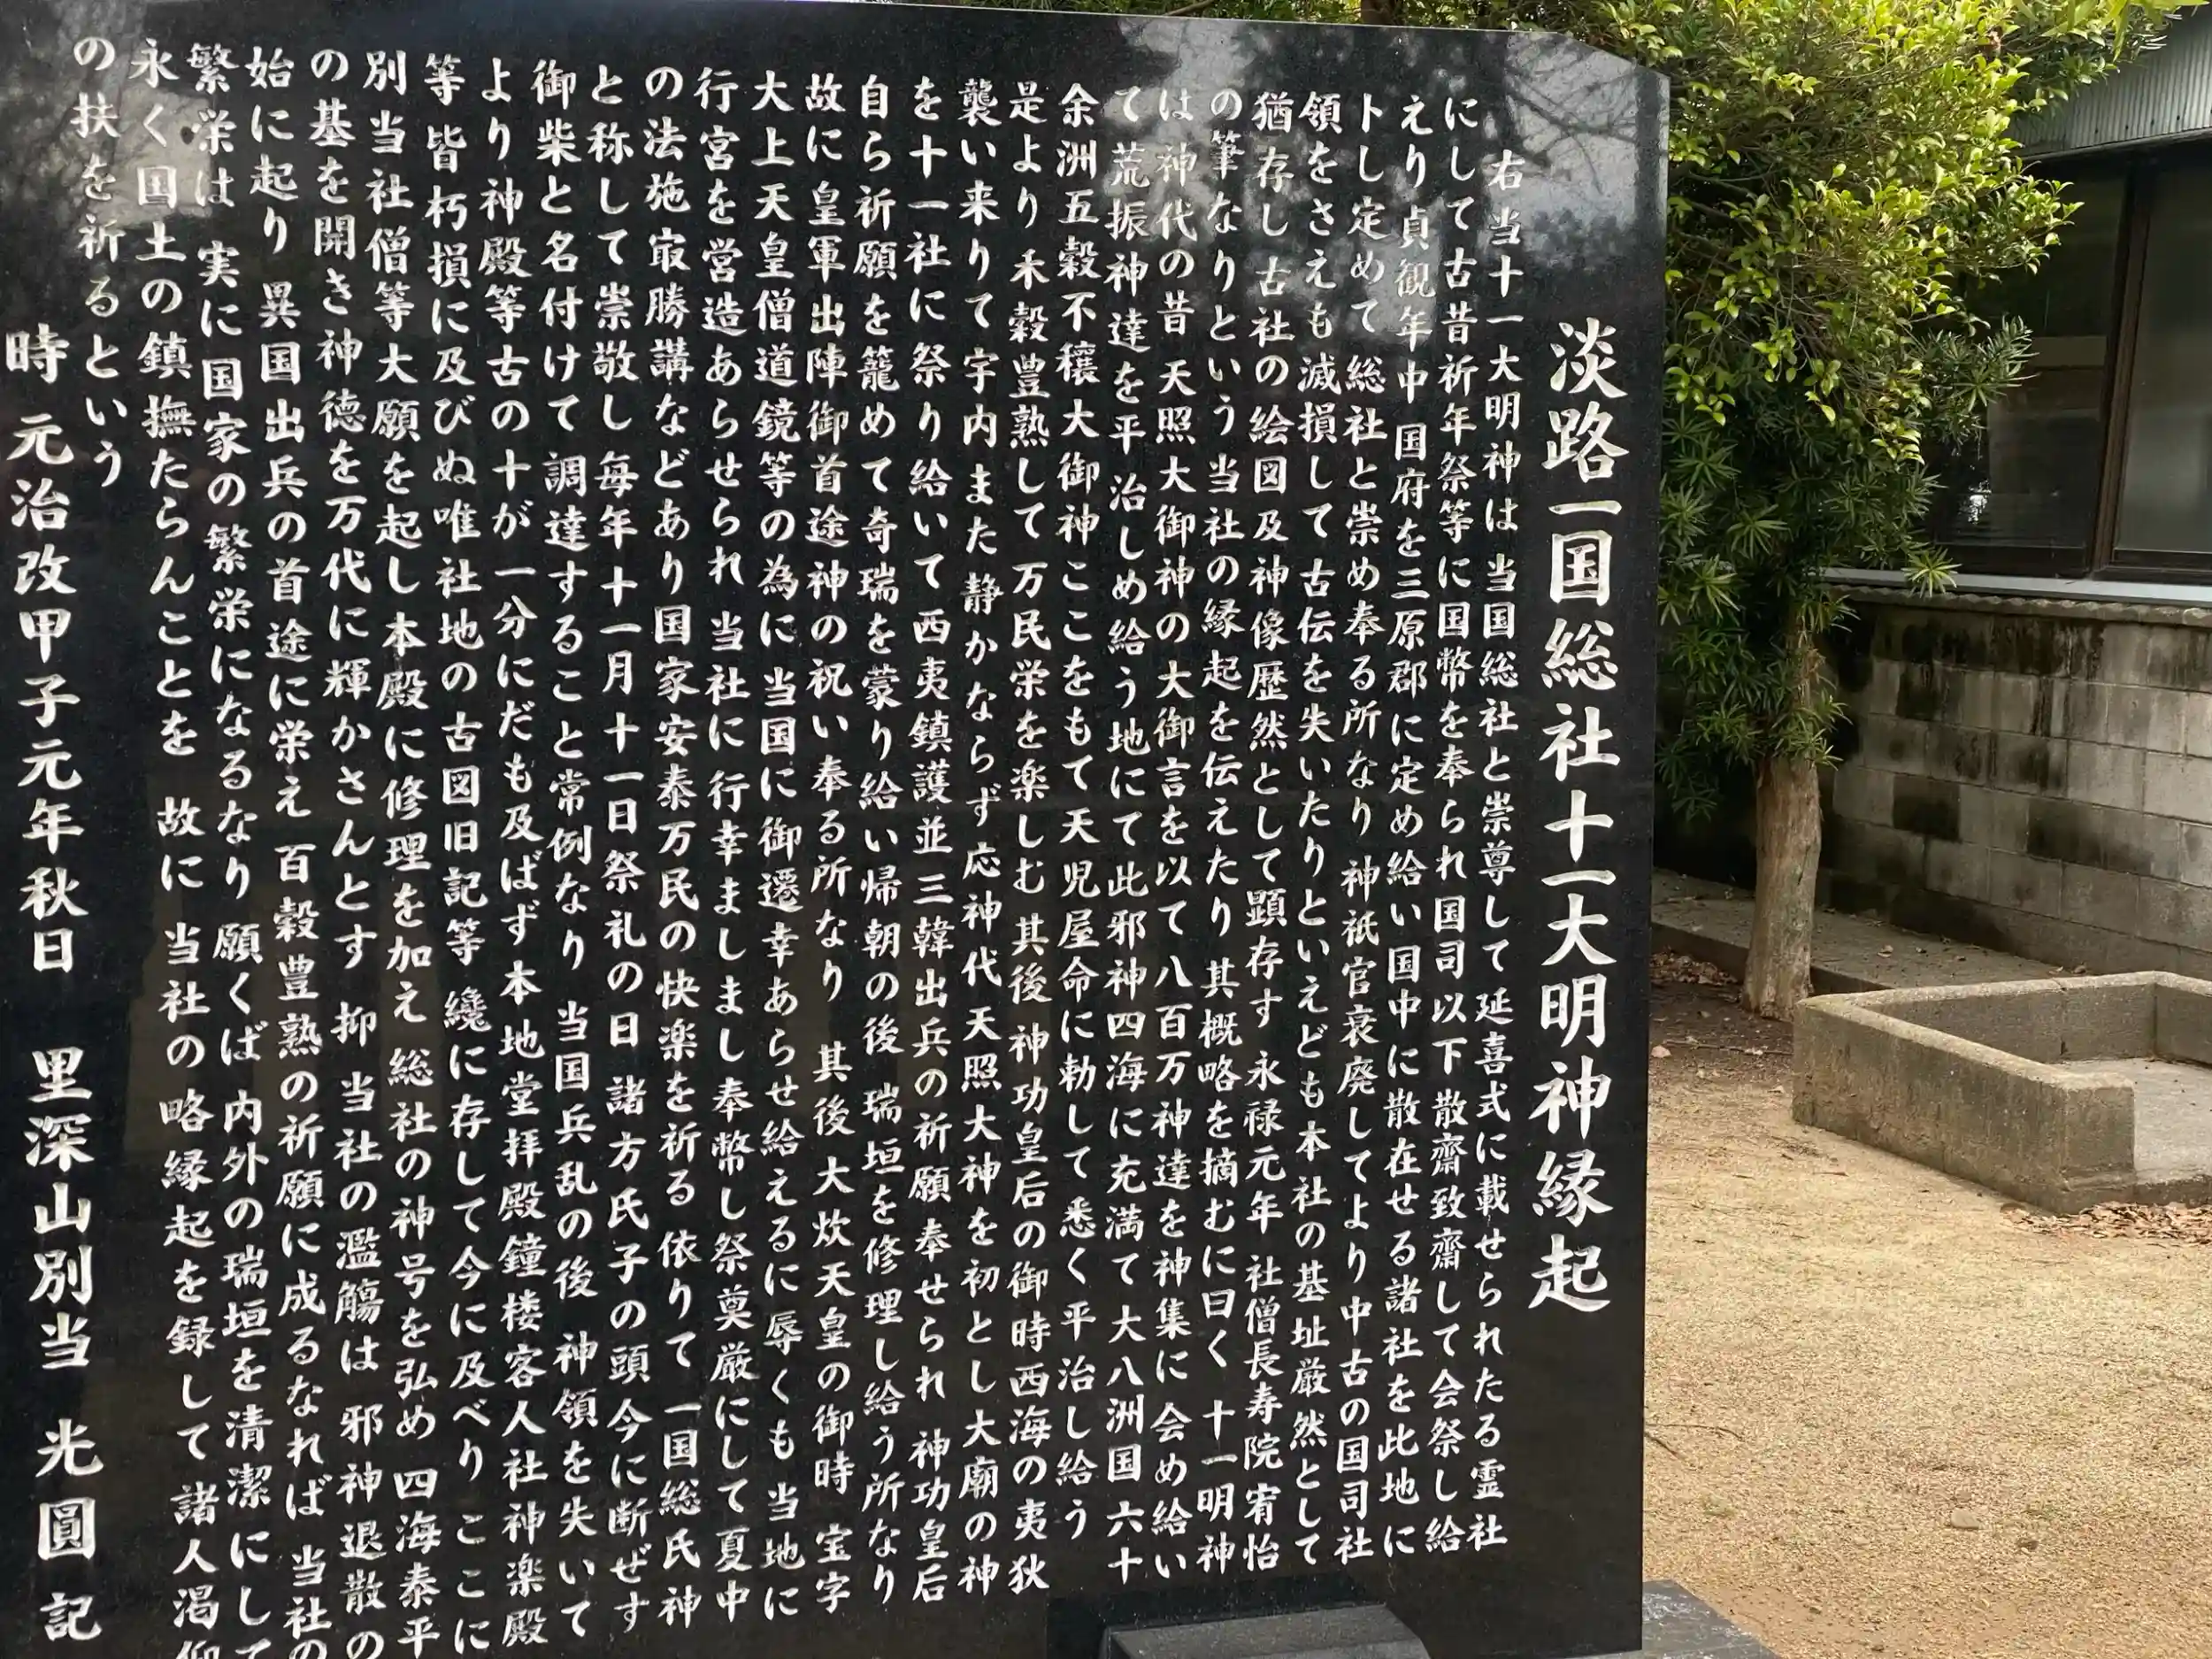 淡路一国総社十一大明神縁起
右当十一大明神は 当国総社と崇尊して延喜式に載せられたる霊社
にして古昔祈年祭等に国幣を奉られ国司以下散齋致齋して会祭し給
えり貞観年中 国府を三原郡に定め給い国中に散在せる諸社を此地に
卜し定めて 総社と崇め奉る所なり 神祇官衰廃してより中古の国司社
領をさえも滅損して古伝を失いたりといえども本社の基址厳然として
猶存し 古社の絵図及神像歴然として顕存す 永禄元年 社僧長寿院宥怡
の筆なりという当社の縁起を伝えたり 其概略を摘むに曰く 十一明神
は 神代の昔 天照大御神の大御言を以て八百万神達を神集に会め給い
て荒振神達を平治しめ給う地にて此邪神四海に充満て大八洲国六十
余洲五穀不穣大御神ここをもて天児屋命に勅して悉く平治し給う
是より 禾穀豊熟して万民栄を楽しむ 其後 神功皇后の御時西海の夷狄
襲い来りて宇内また静かならず応神代天照大神を初とし大廟の神
を十一社に祭り給いて西夷鎮護並三韓出兵の祈願奉せられ 神功皇后
自ら祈願を籠めて奇瑞を蒙り給い帰朝の後 瑞垣を修理し給う所なり
故に皇軍出陣御首途神の祝い奉る所なり 其後 大炊天皇の御時 宝字
大上天皇僧道鏡等の為に 当国に御遷幸あらせ給えるに辱くも当地に
行宮を営造あらせられ 当社に行幸ましまし奉幣し祭奠厳にして夏中
の法施㝡勝講などあり国家安泰万民の快楽を祈る 依りて一国総氏神
と称して崇敬し 毎年十一月十一日祭礼の日 諸方氏子の頭今に断ぜす
御柴と名付けて 調達すること常例なり 当国兵乱の後 神領を失いて
より神殿等古の十が一分にだも及ばず本地堂拝殿鐘楼客人社神楽殿
等 皆朽損に及びぬ唯社地の古図旧記等 纔に存して今に及べり ここに
別当社僧等大願を起し本殿に修理を加え 総社の神号を弘め 四海泰平
の基を開き神徳を万代に輝かさんとす 抑 当社の濫觴は 邪神退散の
始に起り 異国出兵の首途に栄え 百穀豊熟の祈願に成るなれば 当社の
繁栄は 実に国家の繁栄になるなり 願くば 内外の瑞垣を清潔にして
永く国土の鎮撫たらんことを 故に 当社の略縁起を録して諸人渇仰
の扶を祈るという
時 元治改甲子元年秋日 里深山別当 光圓 記